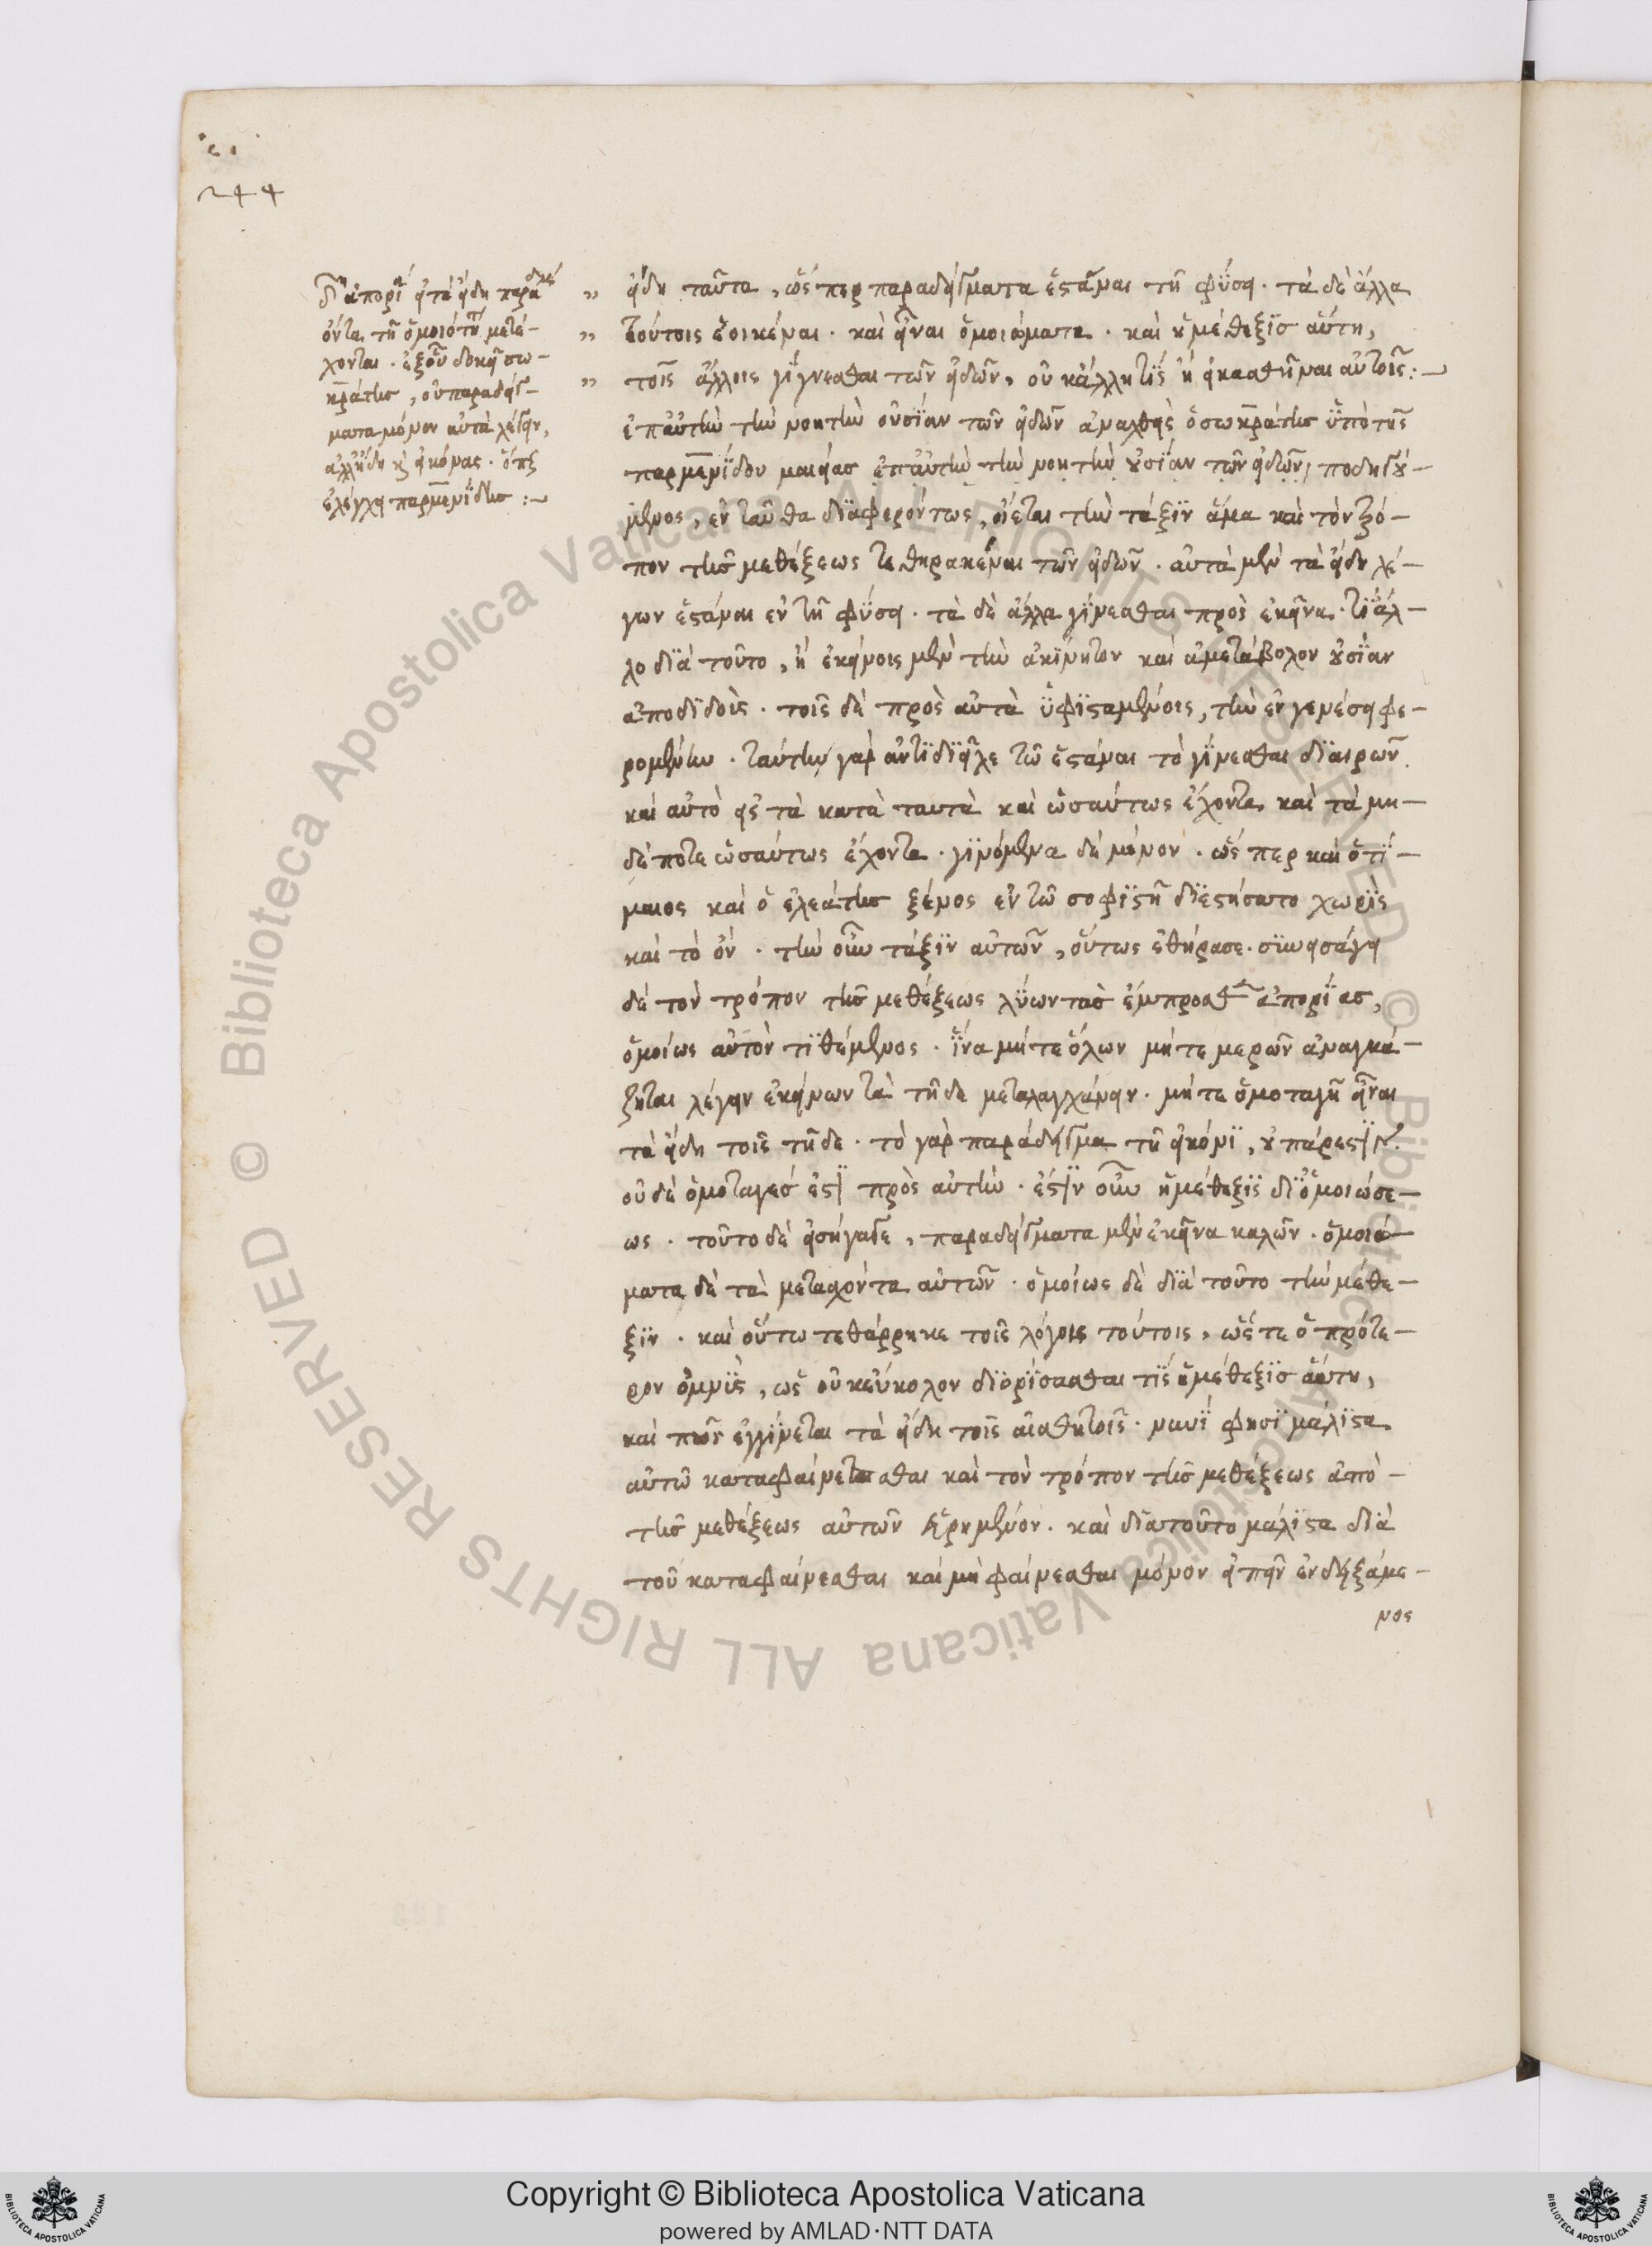 244
Δ΄ ἀπορία εἰ τὰ εἴδη παραδείγ
ὄντα τῇ ὁμοιότητι μετέ-
χονται. ἐξ οὗ δοκεῖ σω-
κράτης, οὐ παραδείγ-
ματα μόνον αὐτὰ λέγειν,
ἀλλ' ἤδη καὶ εἰκόνας. ὅπερ
ἐλέγχει παρμενίδης :-
" εἴδη ταῦτα, ὥσπερ παραδείγματα ἑστάναι τῇ φύσει. τὰ δὲ ἄλλα
" τούτοις ἐοικέναι. καὶ εἶναι ὁμοιώματα. καὶ ἡ μέθεξις αὕτη,
" τοῖς ἄλλοις γίγνεσθαι τῶν εἰδῶν, οὐκ ἄλλη τὶς ἢ εἰκασθῆναι αὐτοῖς :-
ἐπ' αὐτὴν τὴν νοητὴν οὐσίαν τῶν εἰδῶν ἀναχθεὶς ὁ σωκράτης ὑπὸ τῆς
παρμενίδου μαιείας ἐπ' αὐτὴν τὴν νοητὴν οὐσίαν τῶν εἰδῶν, ποδηγού-
μενος, ἐνταῦθα διαφερόντως, οἴεται τὴν τάξιν ἅμα καὶ τὸν τρό-
πον τῆς μεθέξεως τεθηρακέναι τῶν εἰδῶν. αὐτὰ μὲν τὰ εἴδη λέ-
γων ἑστάναι ἐν τῇ φύσει. τὰ δὲ ἄλλα γίνεσθαι πρὸς ἐκεῖνα. τί ἄλ-
λο διὰ τοῦτο, ἢ ἐκείνοις μὲν τὴν ἀκίνητον καὶ ἀμετάβολον οὐσίαν
ἀποδιδοὺς. τοῖς δὲ πρὸς αὐτὰ ὑφισταμένοις, τὴν ἐν γενέσει φε-
ρομένην. ταύτην γὰρ ἀντιδιεῖλε τῷ ἑστάναι τὸ γίνεσθαι διαιρῶν
καὶ αὐτὸ εἰς τὰ κατὰ ταυτὰ καὶ ὡσαύτως ἔχοντα καὶ τὰ μη-
δέποτε ὡσαύτως ἔχοντα. γινόμενα δὲ μόνον. ὥσπερ καὶ ὁ τί-
μαιος καὶ ὁ ἐλεάτης ξένος ἐν τῷ σοφιστῇ διεστήσατο χωρὶς
καὶ τὸ ὄν. τὴν οὖν τάξιν αὐτῶν, οὕτως ἐθήρασε. συνεισάγει
δὲ τὸν τρόπον τῆς μεθέξεως λύων τὰς ἔμπροσθεν ἀπορίας,
ὁμοίως αὐτὸν τιθέμενος. ἵνα μήτε ὅλων μήτε μερῶν ἀναγκά-
ζηται λέγειν ἐκείνων τὰ τῇδε μεταλαγχάνειν. μήτε ὁμοταγῆ εἶναι
τὰ εἴδη τοῖς τῇδε. τὸ γὰρ παράδειγμα τῇ εἰκόνι, οὐ πάρεστιν.
οὐδὲ ὁμοταγές ἐστι πρὸς αὐτὴν. ἔστιν οὖν ἡ μέθεξις δι' ὁμοιώσε-
ως. τοῦτο δὲ εἰσήγαγε, παραδείγματα μὲν ἐκεῖνα καλῶν. ὁμοιώ-
ματα δὲ τὰ μετασχόντα αὐτῶν. ὁμοίως δὲ διὰ τοῦτο τὴν μέθε-
ξιν. καὶ οὕτω τεθάρρηκε τοῖς λόγοις τούτοις, ὥστε ὁ πρότε-
ρον ὀμνὺς, ὡς οὐκ εὔκολον διορίσασθαι τίς ἡ μέθεξις αὕτη,
καὶ πῶς ἐγγίνεται τὰ εἴδη τοῖς αἰσθητοῖς. νυνί φησι μάλιστα
αὐτῷ καταφαίνεσθαι καὶ τὸν τρόπον τῆς μεθέξεως ἀπὸ-
τῆς μεθέξεως αὐτῶν εὑρημένον. καὶ διατοῦτο μάλιστα διὰ
τοῦ καταφαίνεσθαι καὶ μὴ φαίνεσθαι μόνον εἰπεῖν ἐνδειξάμε-
νος
© Biblioteca Apostolica Vaticana ALL RIGHTS RESERVED © Biblioteca Apostolica Vaticana ALL RIGHTS RESERVED
Copyright © Biblioteca Apostolica Vaticana
powered by AMLAD·NTT DATA
BIBLIOTECA APOSTOLICA VATICANA
BIBLIOTECA APOSTOLICA VATICANA